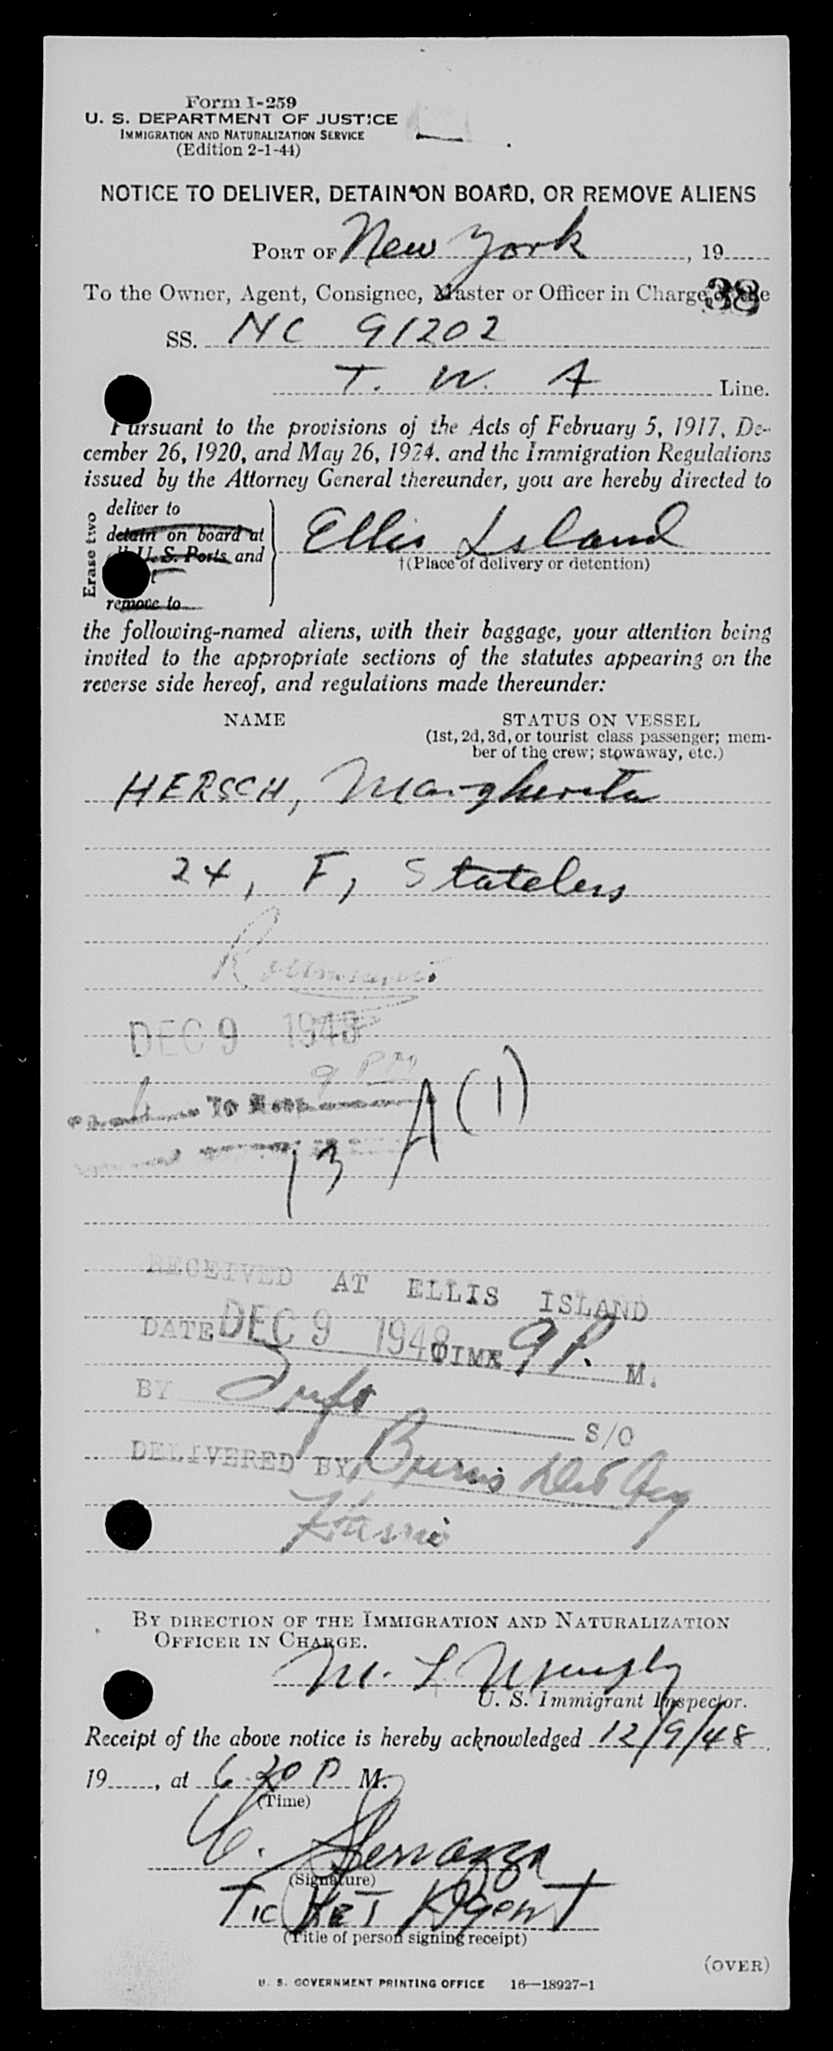 Form I-259
U. S. DEPARTMENT OF JUSTICE
IMMIGRATION AND NATURALIZATION SERVICE
(Edition 2-1-44)
NOTICE TO DELIVER, DETAIN ON BOARD, OR REMOVE ALIENS
PORT OF New York, 19
To the Owner, Agent, Consignee, Master or Officer in Charge of the
38
SS. NC 91202
T. W. A Line.
Pursuant to the provisions of the Acts of February 5, 1917, De-
cember 26, 1920, and May 26, 1924, and the Immigration Regulations
issued by the Attorney General thereunder, you are hereby directed to
Erase two
deliver to
detain on board at
U. S. Ports and
remove to
Ellis Island
†(Place of delivery or detention)
the following-named aliens, with their baggage, your attention being
invited to the appropriate sections of the statutes appearing on the
reverse side hereof, and regulations made thereunder:
NAME STATUS ON VESSEL
(1st, 2d, 3d, or tourist class passenger; mem-
ber of the crew; stowaway, etc.)
HERSCH, Margherita
24, F, Stateless
DEC 9 194
9 PM
To
A (1)
13
RECEIVED AT ELLIS ISLAND
DATE DEC 9 1948 TIME 9 P. M.
BY S/O
DELIVERED BY Burns Det Agy
By direction of the Immigration and Naturalization
Officer in Charge.
M. L.
U. S. Immigrant Inspector.
Receipt of the above notice is hereby acknowledged 12/9/48
19, at 6 30 P M.
(Time)
(Signature)
Ticket Agent
(Title of person signing receipt)
(OVER)
U. S. GOVERNMENT PRINTING OFFICE 16—18927-1